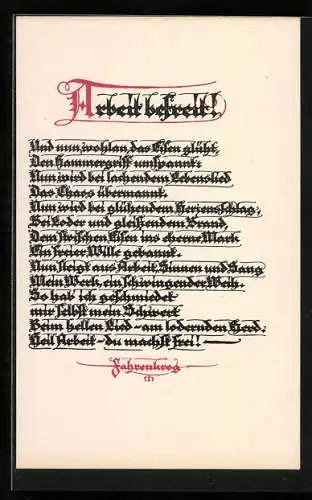 Arbeit befreit!
Und nun, wohlan, das Eisen glüht,
Den Hammergriff umspannt:
Nun wird bei lachendem Lebenslied
Das Chaos übermannt.
Nun wird bei glühendem Herzensschlag,
Bei Loder und gleißendem Brand,
Dem steifschen Eisen ins eherne Mark
Ein freier Wille gebannt.
Nun steigt aus Arbeit, Sinnen und Sang
Mein Werk, ein schwingender Weih.
So hab' ich geschmiedet
mir selbst mein Schwert
Beim hellen Lied – am lodernden Herd:
Heil Arbeit – du machst frei!
Fahrenkrog